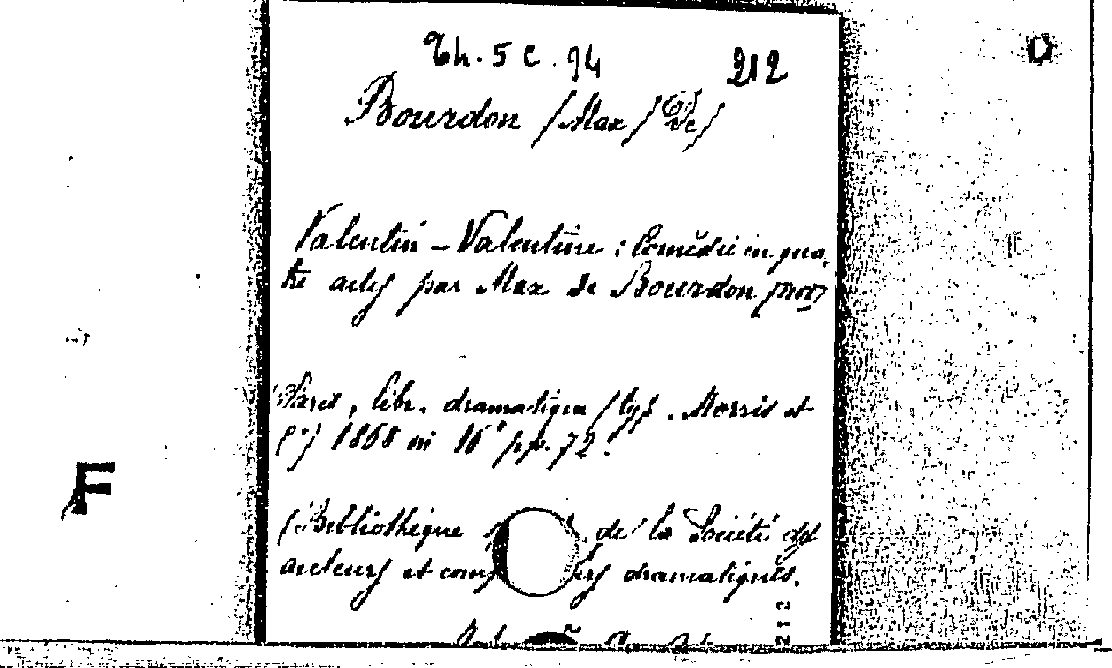 Th. 5 C. 94 212
Bourdon (Max) (de)
Valentin - Valentine : Comédie en qua-
tre actes par Max de Bourdon
Paris, libr. dramatique (typ. Morris et
C.e) 18 in 16° pp. 72.
(Bibliothèque de la Société des
auteurs et dramatiques.
F
212